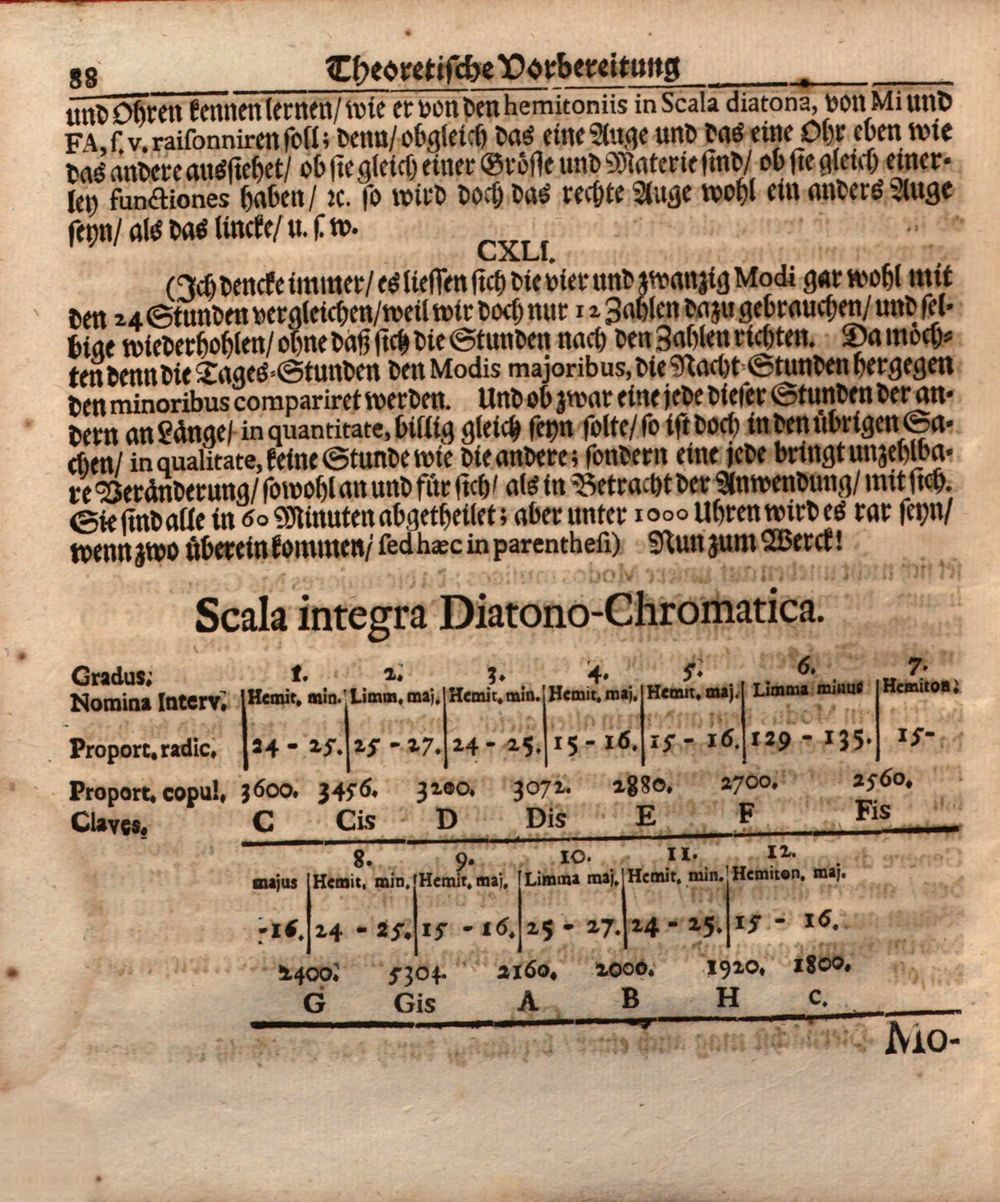 88 Theoretische Vorbereitung
und Ohren kennen lernen/ wie er von den hemitoniis in Scala diatona, von Mi und
FA, s. v. raisonniren soll; denn/ obgleich das eine Auge und das eine Ohr eben wie
das andere aussiehet/ ob sie gleich einer Grösse und Materie sind/ ob sie gleich einer-
ley functiones haben/ ꝛc. so wird doch das rechte Auge wohl ein anders Auge
seyn/ als das lincke/ u. s. w.
CXLI.
(Ich dencke immer/ es liessen sich die vier und zwanzig Modi gar wohl mit
den 24 Stunden vergleichen/ weil wir doch nur 12 Zahlen dazu gebrauchen/ und sel-
bige wiederhohlen/ ohne daß sich die Stunden nach den Zahlen richten. Da möch-
ten denn die Tages-Stunden den Modis majoribus, die Nacht-Stunden hergegen
den minoribus compariret werden. Und ob zwar eine jede dieser Stunden der an-
dern an Länge/ in quantitate, billig gleich seyn solte/ so ist doch in den übrigen Sa-
chen/ in qualitate, keine Stunde wie die andere; sondern eine jede bringt unzehlba-
re Veränderung/ sowohl an und für sich/ als in Betracht der Anwendung/ mit sich.
Sie sind alle in 60 Minuten abgetheilet; aber unter 1000 Uhren wird es rar seyn/
wenn zwo überein kommen/ sed hæc in parenthesi) Nun zum Werck!
Scala integra Diatono-Chromatica.
Gradus: 1. 2. 3. 4. 5. 6. 7.
Nomina Interv. Hemit. min. Limm. maj. Hemit. min. Hemit. maj. Hemit. maj. Limma minus Hemiton:
Proport. radic. 24 - 25. 25 - 27. 24 - 25. 15 - 16. 15 - 16. 129 - 135. 15-
Proport. copul. 3600. 3456. 3200. 3072. 2880. 2700. 2560.
Claves. C Cis D Dis E F Fis
8. 9. 10. 11. 12.
majus Hemit. min. Hemit. maj. Limma maj. Hemit. min. Hemiton. maj.
-16. 24 - 25. 15 - 16. 25 - 27. 24 - 25. 15 - 16.
2400. 5304. 2160. 2000. 1920. 1800.
G Gis A B H c.
Mo-